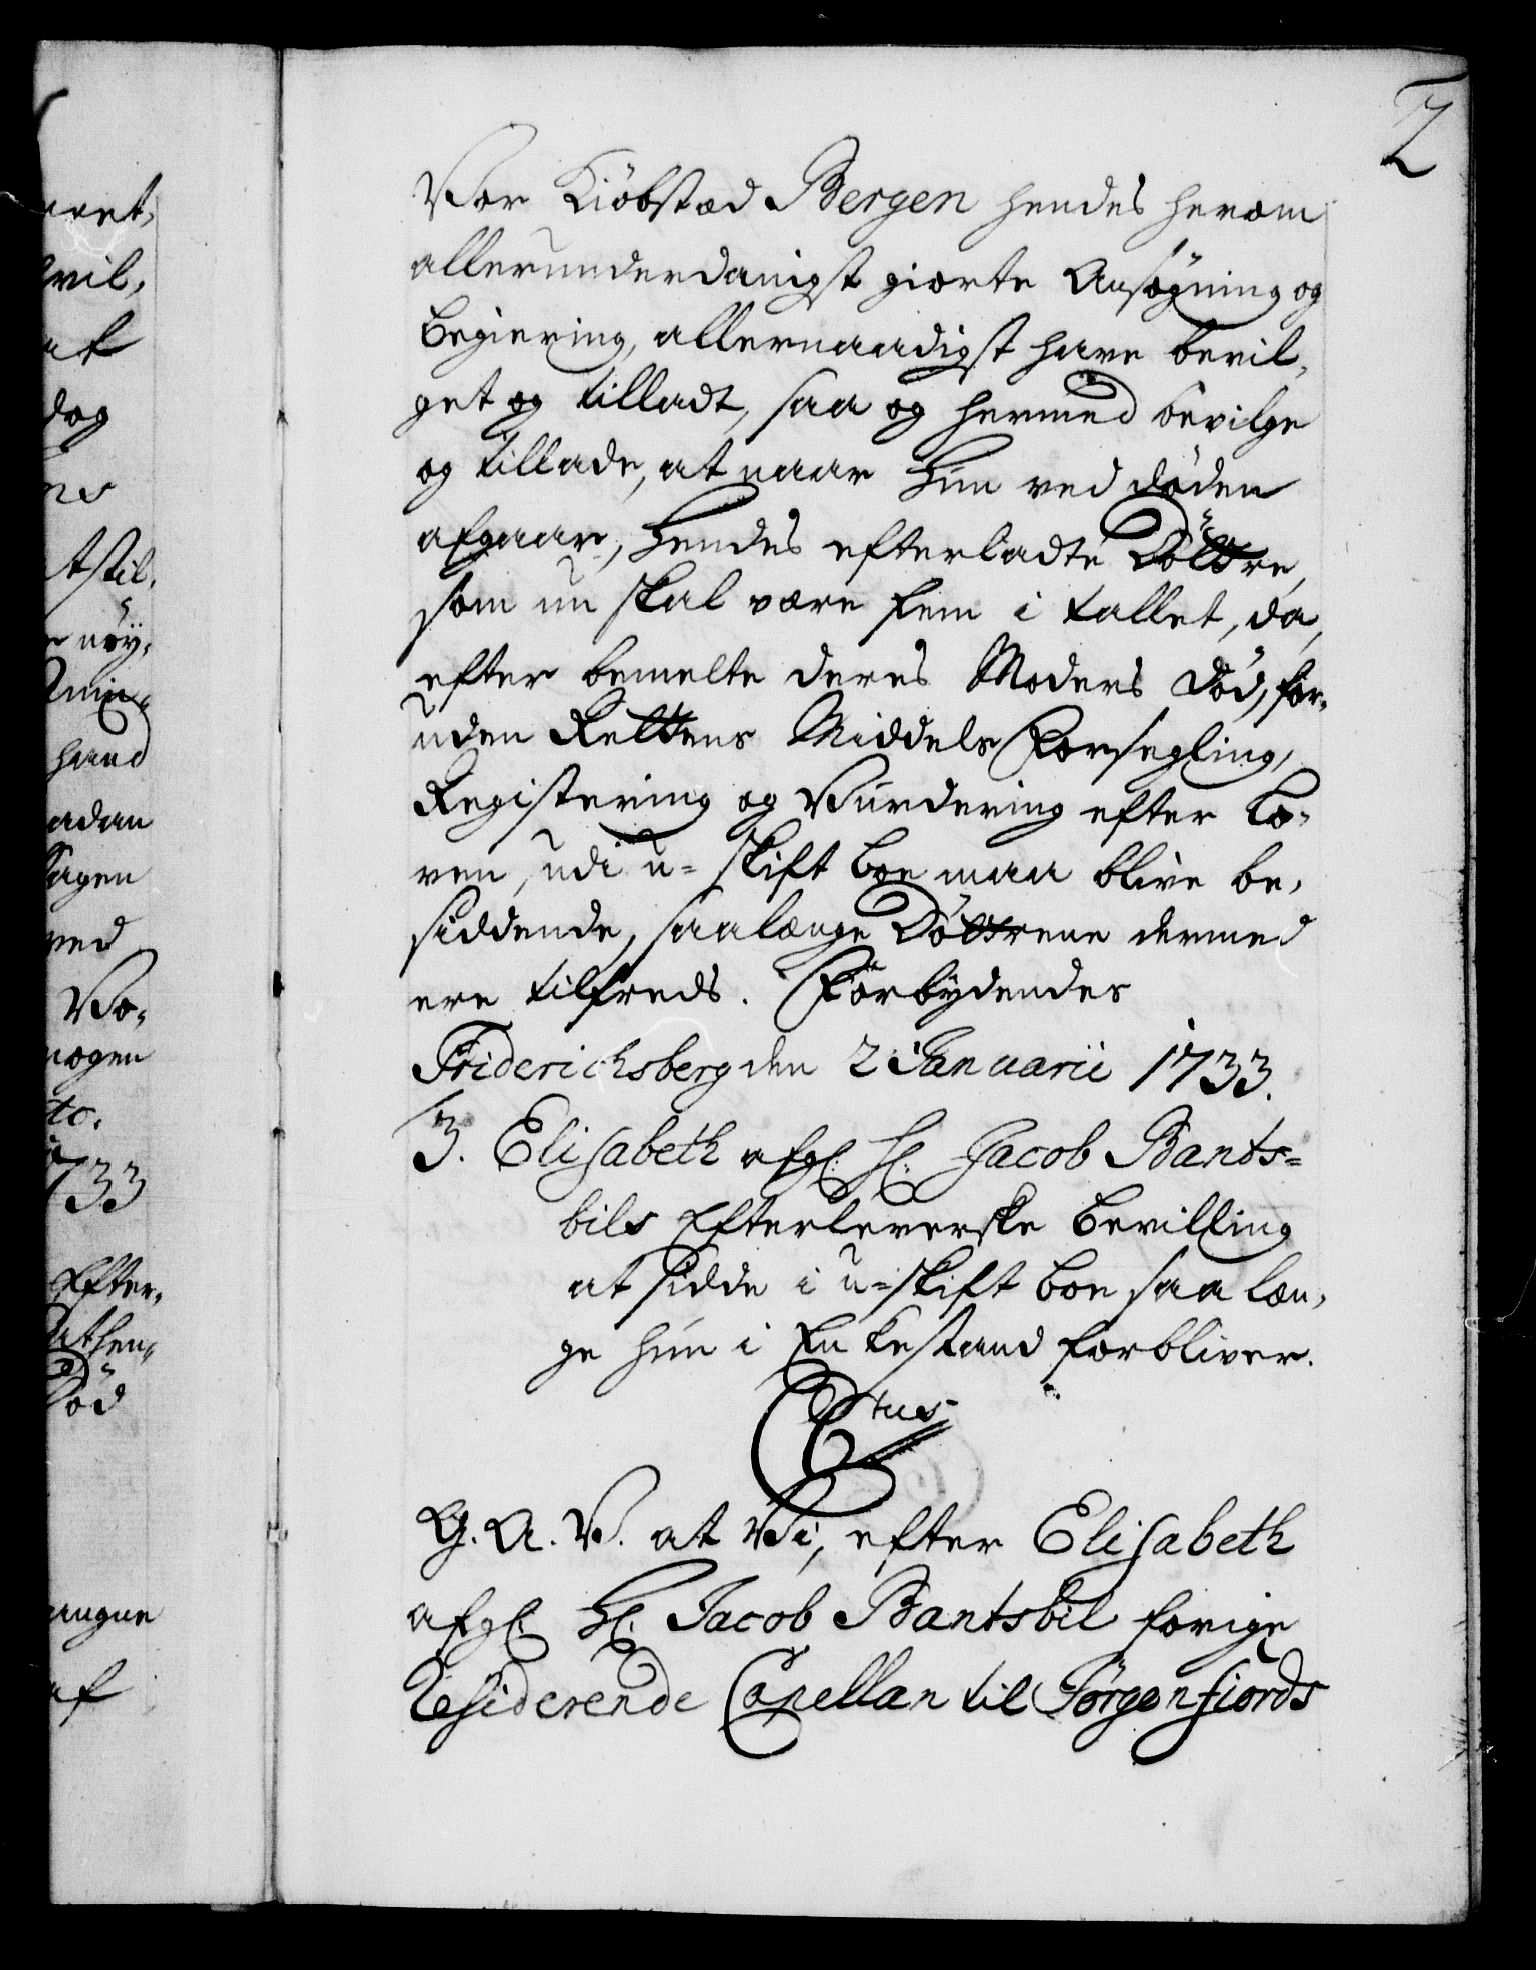 2
Vor Kiöbstæd Bergen hendes herom
allerunderdanigst giorte Ansøgning og
begiering, allernaadigst have bevil,
get og tilladt, saa og hermed bevilge
og tillade, at naar Hun ved döden
afgaar, Hendes efterladte Döttre,
som nu skal være fem i tallet, da,
efter bemelte deres Moders Död, for-
uden Rettens Middels Forsegling,
Registering og Vurdering efter Lo-
ven, udi u-skift Boe maa blive be,
siddende, saalænge Döttrene dermed
ere tilfreds. Forbydendes
Friderichsberg den 2 Januarii 1733.
3. Elisabeth afgl: Hl: Jacob Bants-
bils Efterleverske Bevilling
at sidde i u-skift boe saa læn,
ge hun i Enkestand forbliver.
C 6tus
G. A. V. at Vi, efter Elisabeth
afgl: Hl: Jacob Bantsbil forige
Residerende Capellan til Jørgenfiords
aret,
vil,
at
dog
ns
tstil,
nöy,
hand
adan
Sagen
ved
Vo-
nogen
to.
1733
Efter,
Död
af